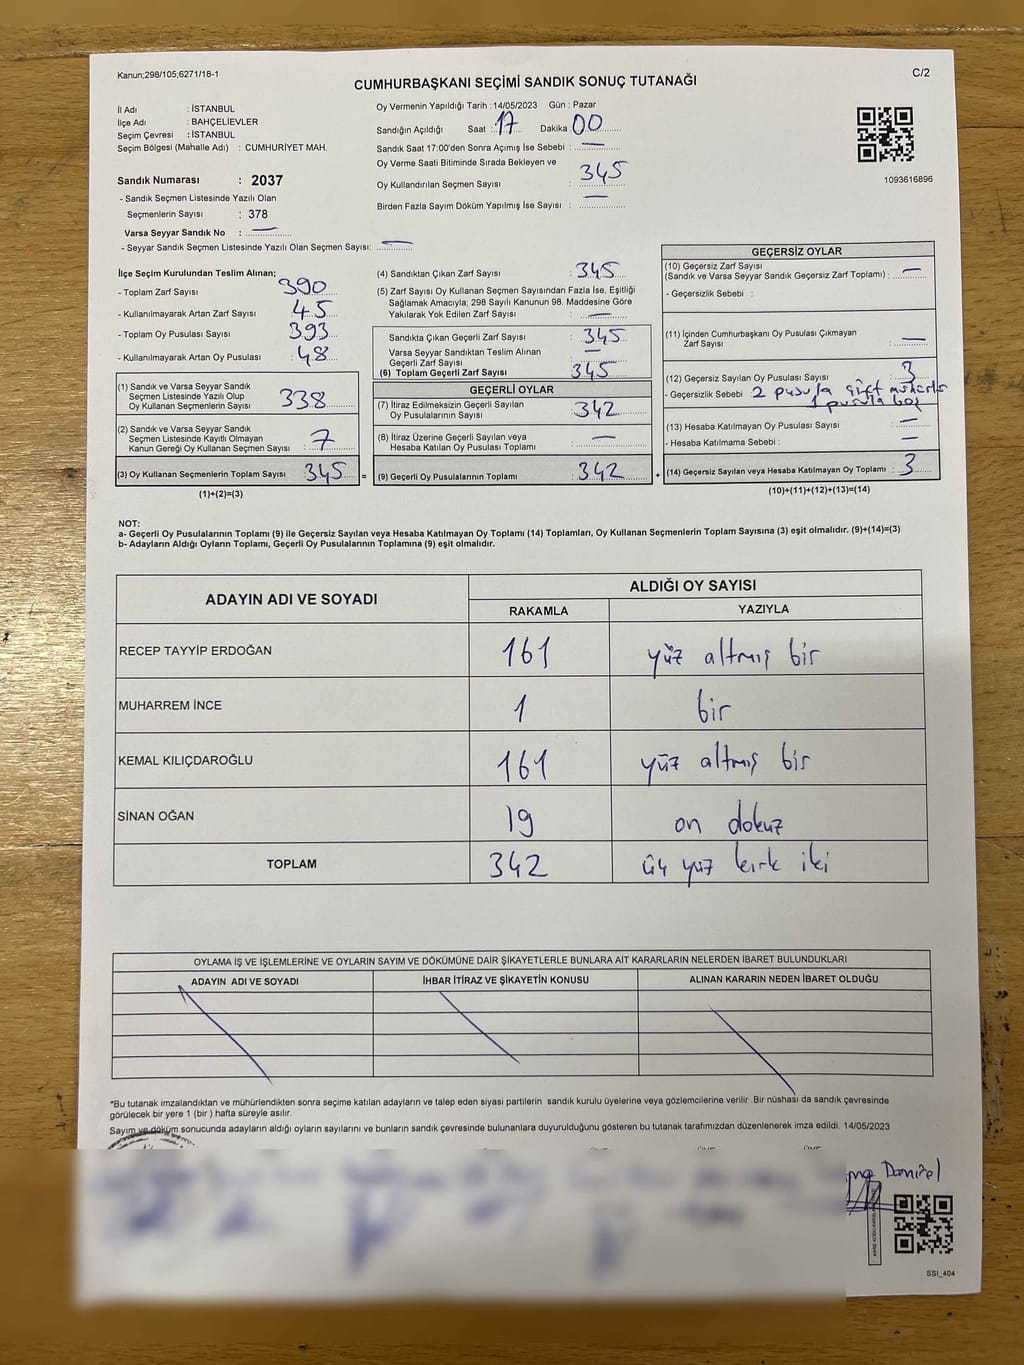 Kanun;298/105;6271/18-1
C/2
CUMHURBAŞKANI SEÇİMİ SANDIK SONUÇ TUTANAĞI
İl Adı : İSTANBUL
İlçe Adı : BAHÇELİEVLER
Seçim Çevresi : İSTANBUL
Seçim Bölgesi (Mahalle Adı) : CUMHURİYET MAH.
Sandık Numarası : 2037
- Sandık Seçmen Listesinde Yazılı Olan
Seçmenlerin Sayısı : 378
Varsa Seyyar Sandık No : —
- Seyyar Sandık Seçmen Listesinde Yazılı Olan Seçmen Sayısı: —
Oy Vermenin Yapıldığı Tarih : 14/05/2023 Gün : Pazar
Sandığın Açıldığı Saat : 17 Dakika : 00
Sandık Saat 17:00'den Sonra Açılmış İse Sebebi : —
Oy Verme Saati Bitiminde Sırada Bekleyen ve
Oy Kullandırılan Seçmen Sayısı : 345
Birden Fazla Sayım Döküm Yapılmış İse Sayısı : —
1093616896
İlçe Seçim Kurulundan Teslim Alınan;
- Toplam Zarf Sayısı : 390
- Kullanılmayarak Artan Zarf Sayısı : 45
- Toplam Oy Pusulası Sayısı : 393
- Kullanılmayarak Artan Oy Pusulası : 48
(1) Sandık ve Varsa Seyyar Sandık
Seçmen Listesinde Yazılı Olup
Oy Kullanan Seçmenlerin Sayısı : 338
(2) Sandık ve Varsa Seyyar Sandık
Seçmen Listesinde Kayıtlı Olmayan
Kanun Gereği Oy Kullanan Seçmen Sayısı : 7
(3) Oy Kullanan Seçmenlerin Toplam Sayısı : 345 =
(1)+(2)=(3)
(4) Sandıktan Çıkan Zarf Sayısı : 345
(5) Zarf Sayısı Oy Kullanan Seçmen Sayısından Fazla İse, Eşitliği
Sağlamak Amacıyla; 298 Sayılı Kanunun 98. Maddesine Göre
Yakılarak Yok Edilen Zarf Sayısı : —
Sandıkta Çıkan Geçerli Zarf Sayısı : 345
Varsa Seyyar Sandıktan Teslim Alınan
Geçerli Zarf Sayısı : —
(6) Toplam Geçerli Zarf Sayısı : 345
GEÇERLİ OYLAR
(7) İtiraz Edilmeksizin Geçerli Sayılan
Oy Pusulalarının Sayısı : 342
(8) İtiraz Üzerine Geçerli Sayılan veya
Hesaba Katılan Oy Pusulası Toplamı : —
(9) Geçerli Oy Pusulalarının Toplamı : 342 +
GEÇERSİZ OYLAR
(10) Geçersiz Zarf Sayısı
(Sandık ve Varsa Seyyar Sandık Geçersiz Zarf Toplamı) : —
- Geçersizlik Sebebi :
(11) İçinden Cumhurbaşkanı Oy Pusulası Çıkmayan
Zarf Sayısı : —
(12) Geçersiz Sayılan Oy Pusulası Sayısı : 3
- Geçersizlik Sebebi : 2 pusula çift
1 pusula boş
(13) Hesaba Katılmayan Oy Pusulası Sayısı : —
- Hesaba Katılmama Sebebi : —
(14) Geçersiz Sayılan veya Hesaba Katılmayan Oy Toplamı : 3
(10)+(11)+(12)+(13)=(14)
NOT:
a- Geçerli Oy Pusulalarının Toplamı (9) ile Geçersiz Sayılan veya Hesaba Katılmayan Oy Toplamı (14) Toplamları, Oy Kullanan Seçmenlerin Toplam Sayısına (3) eşit olmalıdır. (9)+(14)=(3)
b- Adayların Aldığı Oyların Toplamı, Geçerli Oy Pusulalarının Toplamına (9) eşit olmalıdır.
ADAYIN ADI VE SOYADI ALDIĞI OY SAYISI
RAKAMLA YAZIYLA
RECEP TAYYİP ERDOĞAN 161 yüz altmış bir
MUHARREM İNCE 1 bir
KEMAL KILIÇDAROĞLU 161 yüz altmış bir
SİNAN OĞAN 19 on dokuz
TOPLAM 342 üç yüz kırk iki
OYLAMA İŞ VE İŞLEMLERİNE VE OYLARIN SAYIM VE DÖKÜMÜNE DAİR ŞİKAYETLERLE BUNLARA AİT KARARLARIN NELERDEN İBARET BULUNDUKLARI
ADAYIN ADI VE SOYADI İHBAR İTİRAZ VE ŞİKAYETİN KONUSU ALINAN KARARIN NEDEN İBARET OLDUĞU
*Bu tutanak imzalandıktan ve mühürlendikten sonra seçime katılan adayların ve talep eden siyasi partilerin sandık kurulu üyelerine veya gözlemcilerine verilir .Bir nüshası da sandık çevresinde
görülecek bir yere 1 (bir ) hafta süreyle asılır.
Sayım ve döküm sonucunda adayların aldığı oyların sayılarını ve bunların sandık çevresinde bulunanlara duyurulduğunu gösteren bu tutanak tarafımızdan düzenlenerek imza edildi. 14/05/2023
SSI_404